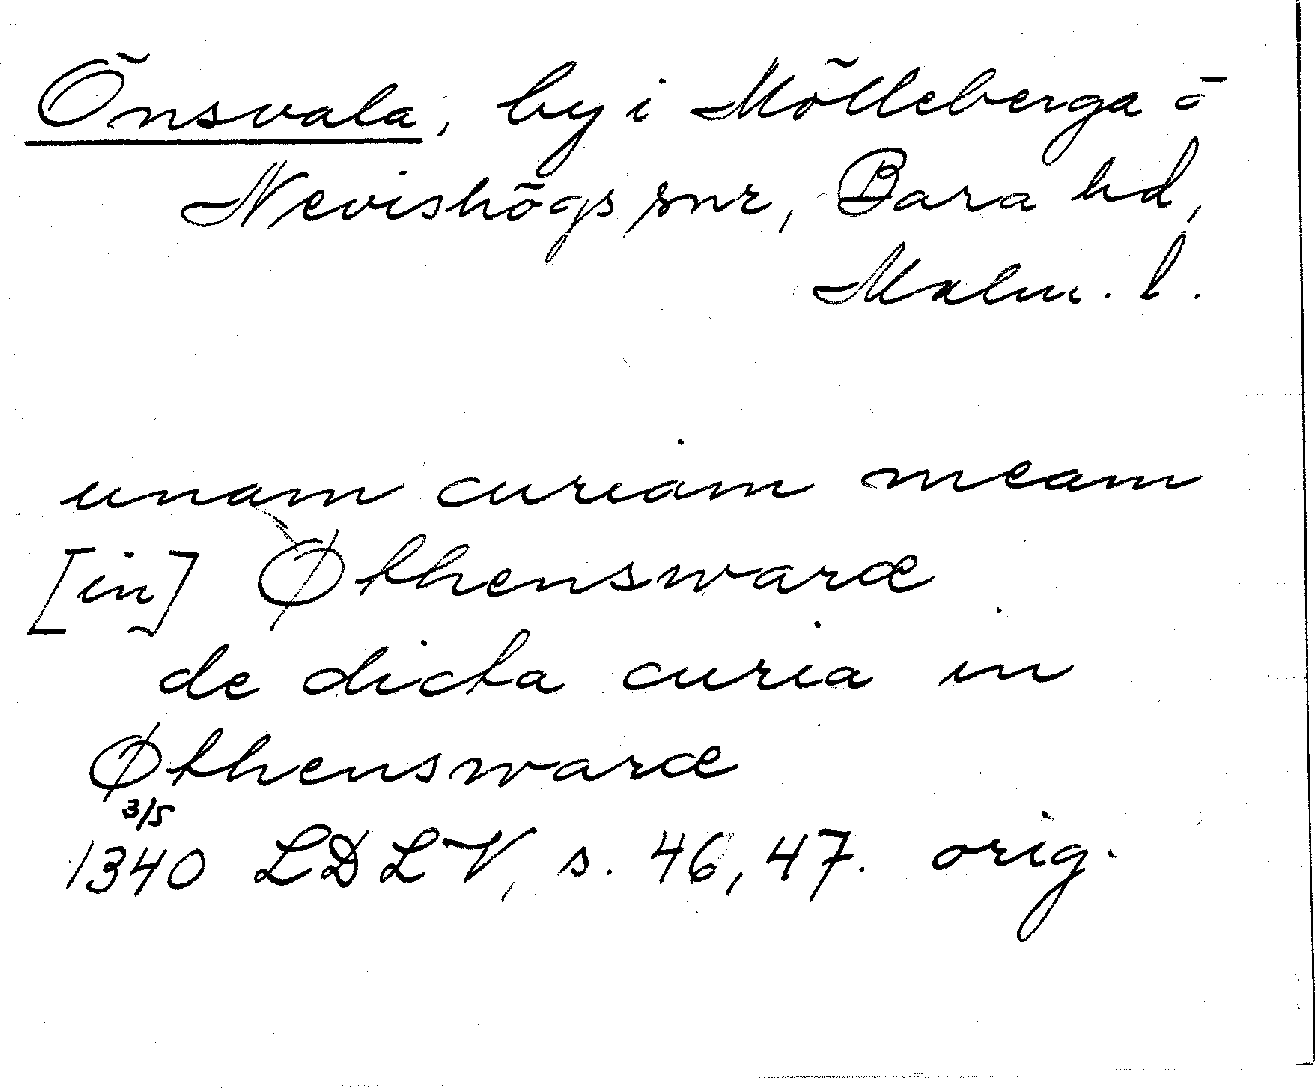 Önsvala, by i Mölleberga o
Nevishögs snr, Bara hd,
Malm. l.
unam curiam meam
[in] Øthenswaræ
de dicta curia in
Øthenswaræ
3/5
1340 LDLV, s. 46, 47. orig.